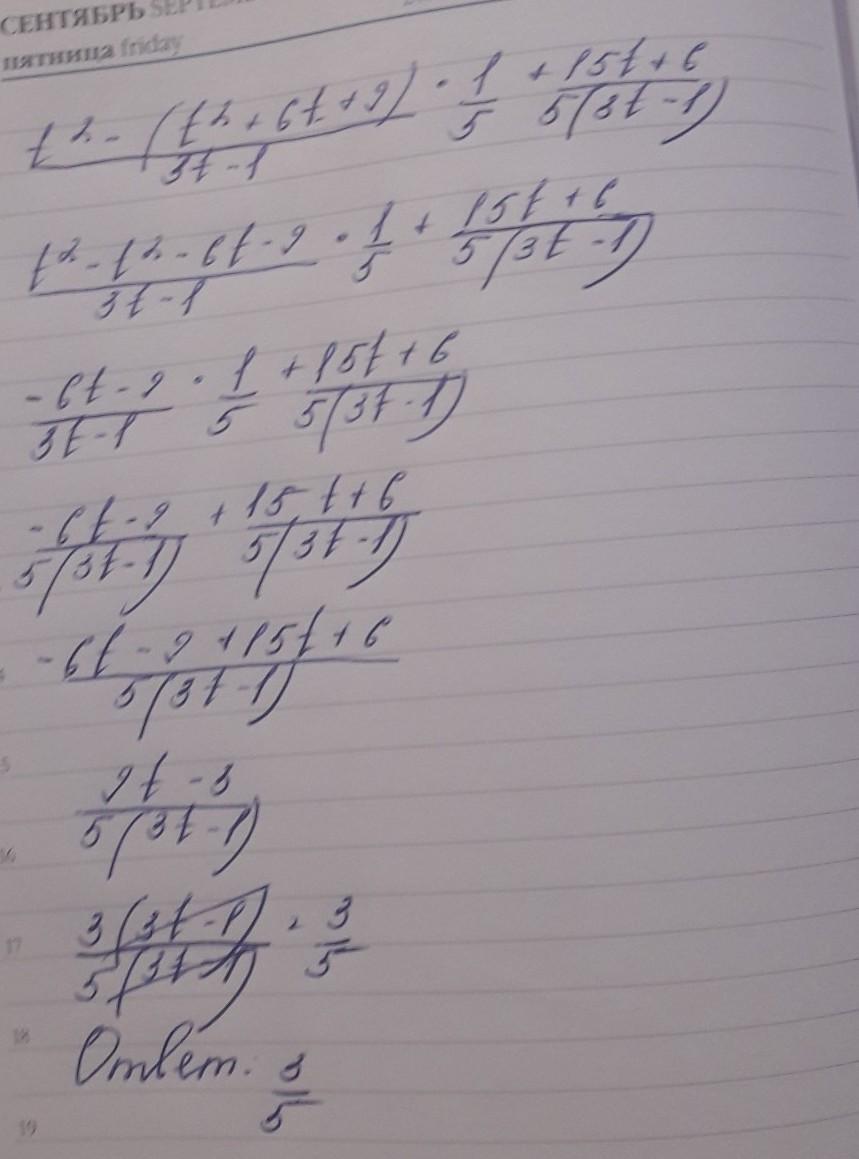 СЕНТЯБРЬ SEPTEM
пятница friday
t² - (t² + 6t + 9) / 3t - 1 · 1/5 + 15t + 6 / 5(3t - 1)
t² - t² - 6t - 9 / 3t - 1 · 1/5 + 15t + 6 / 5(3t - 1)
-6t - 9 / 3t - 1 · 1/5 + 15t + 6 / 5(3t - 1)
-6t - 9 / 5(3t - 1) + 15t + 6 / 5(3t - 1)
-6t - 9 + 15t + 6 / 5(3t - 1)
9t - 3 / 5(3t - 1)
3(3t - 1) / 5(3t - 1) = 3/5
17
18
Ответ. 3/5
19